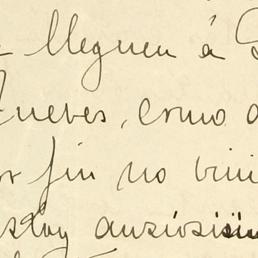 lleguen á
Jueves, como
por fin no vini
estoy ansiosísim